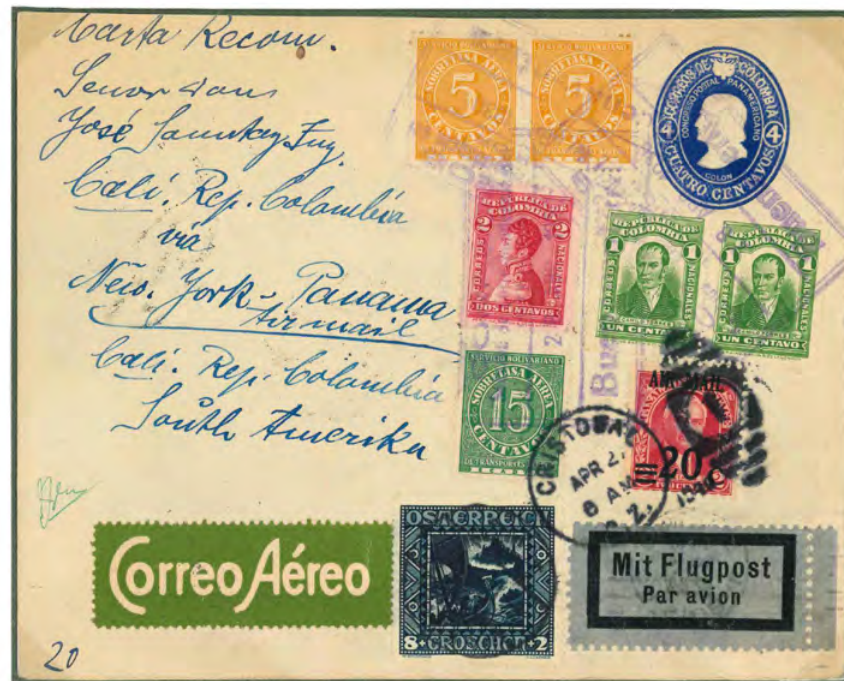 Carta Recom.
José
Cali. Rep. Colombia
via
New. York - Panama
Airmail
Cali. Rep. Colombia
South Amerika
20
SERVICIO BOLIVARIANO
SOBRETASA AEREA
5
CENTAVOS
DE TRANSPORTES AEREOS
SERVICIO BOLIVARIANO
SOBRETASA AEREA
5
CENTAVOS
CORREOS DE COLOMBIA
CONGRESO POSTAL PANAMERICANO
4 4
COLON
CUATRO CENTAVOS
REPUBLICA DE
COLOMBIA
2 2
CORREOS NACIONALES
DOS CENTAVOS
REPUBLICA DE
COLOMBIA
1 1
CORREOS NACIONALES
CAMILO TORRES
UN CENTAVO
REPUBLICA DE
COLOMBIA
1 1
CORREOS NACIONALES
CAMILO TORRES
UN CENTAVO
SERVICIO BOLIVARIANO
SOBRETASA AEREA
15
CENTAVOS
DE TRANSPORTES
AIR MAIL
20
CRISTOBAL
APR 2
8 AM
C. Z.
Correo Aéreo
OSTERREICH
8+GROSCHEN+2
Mit Flugpost
Par avion